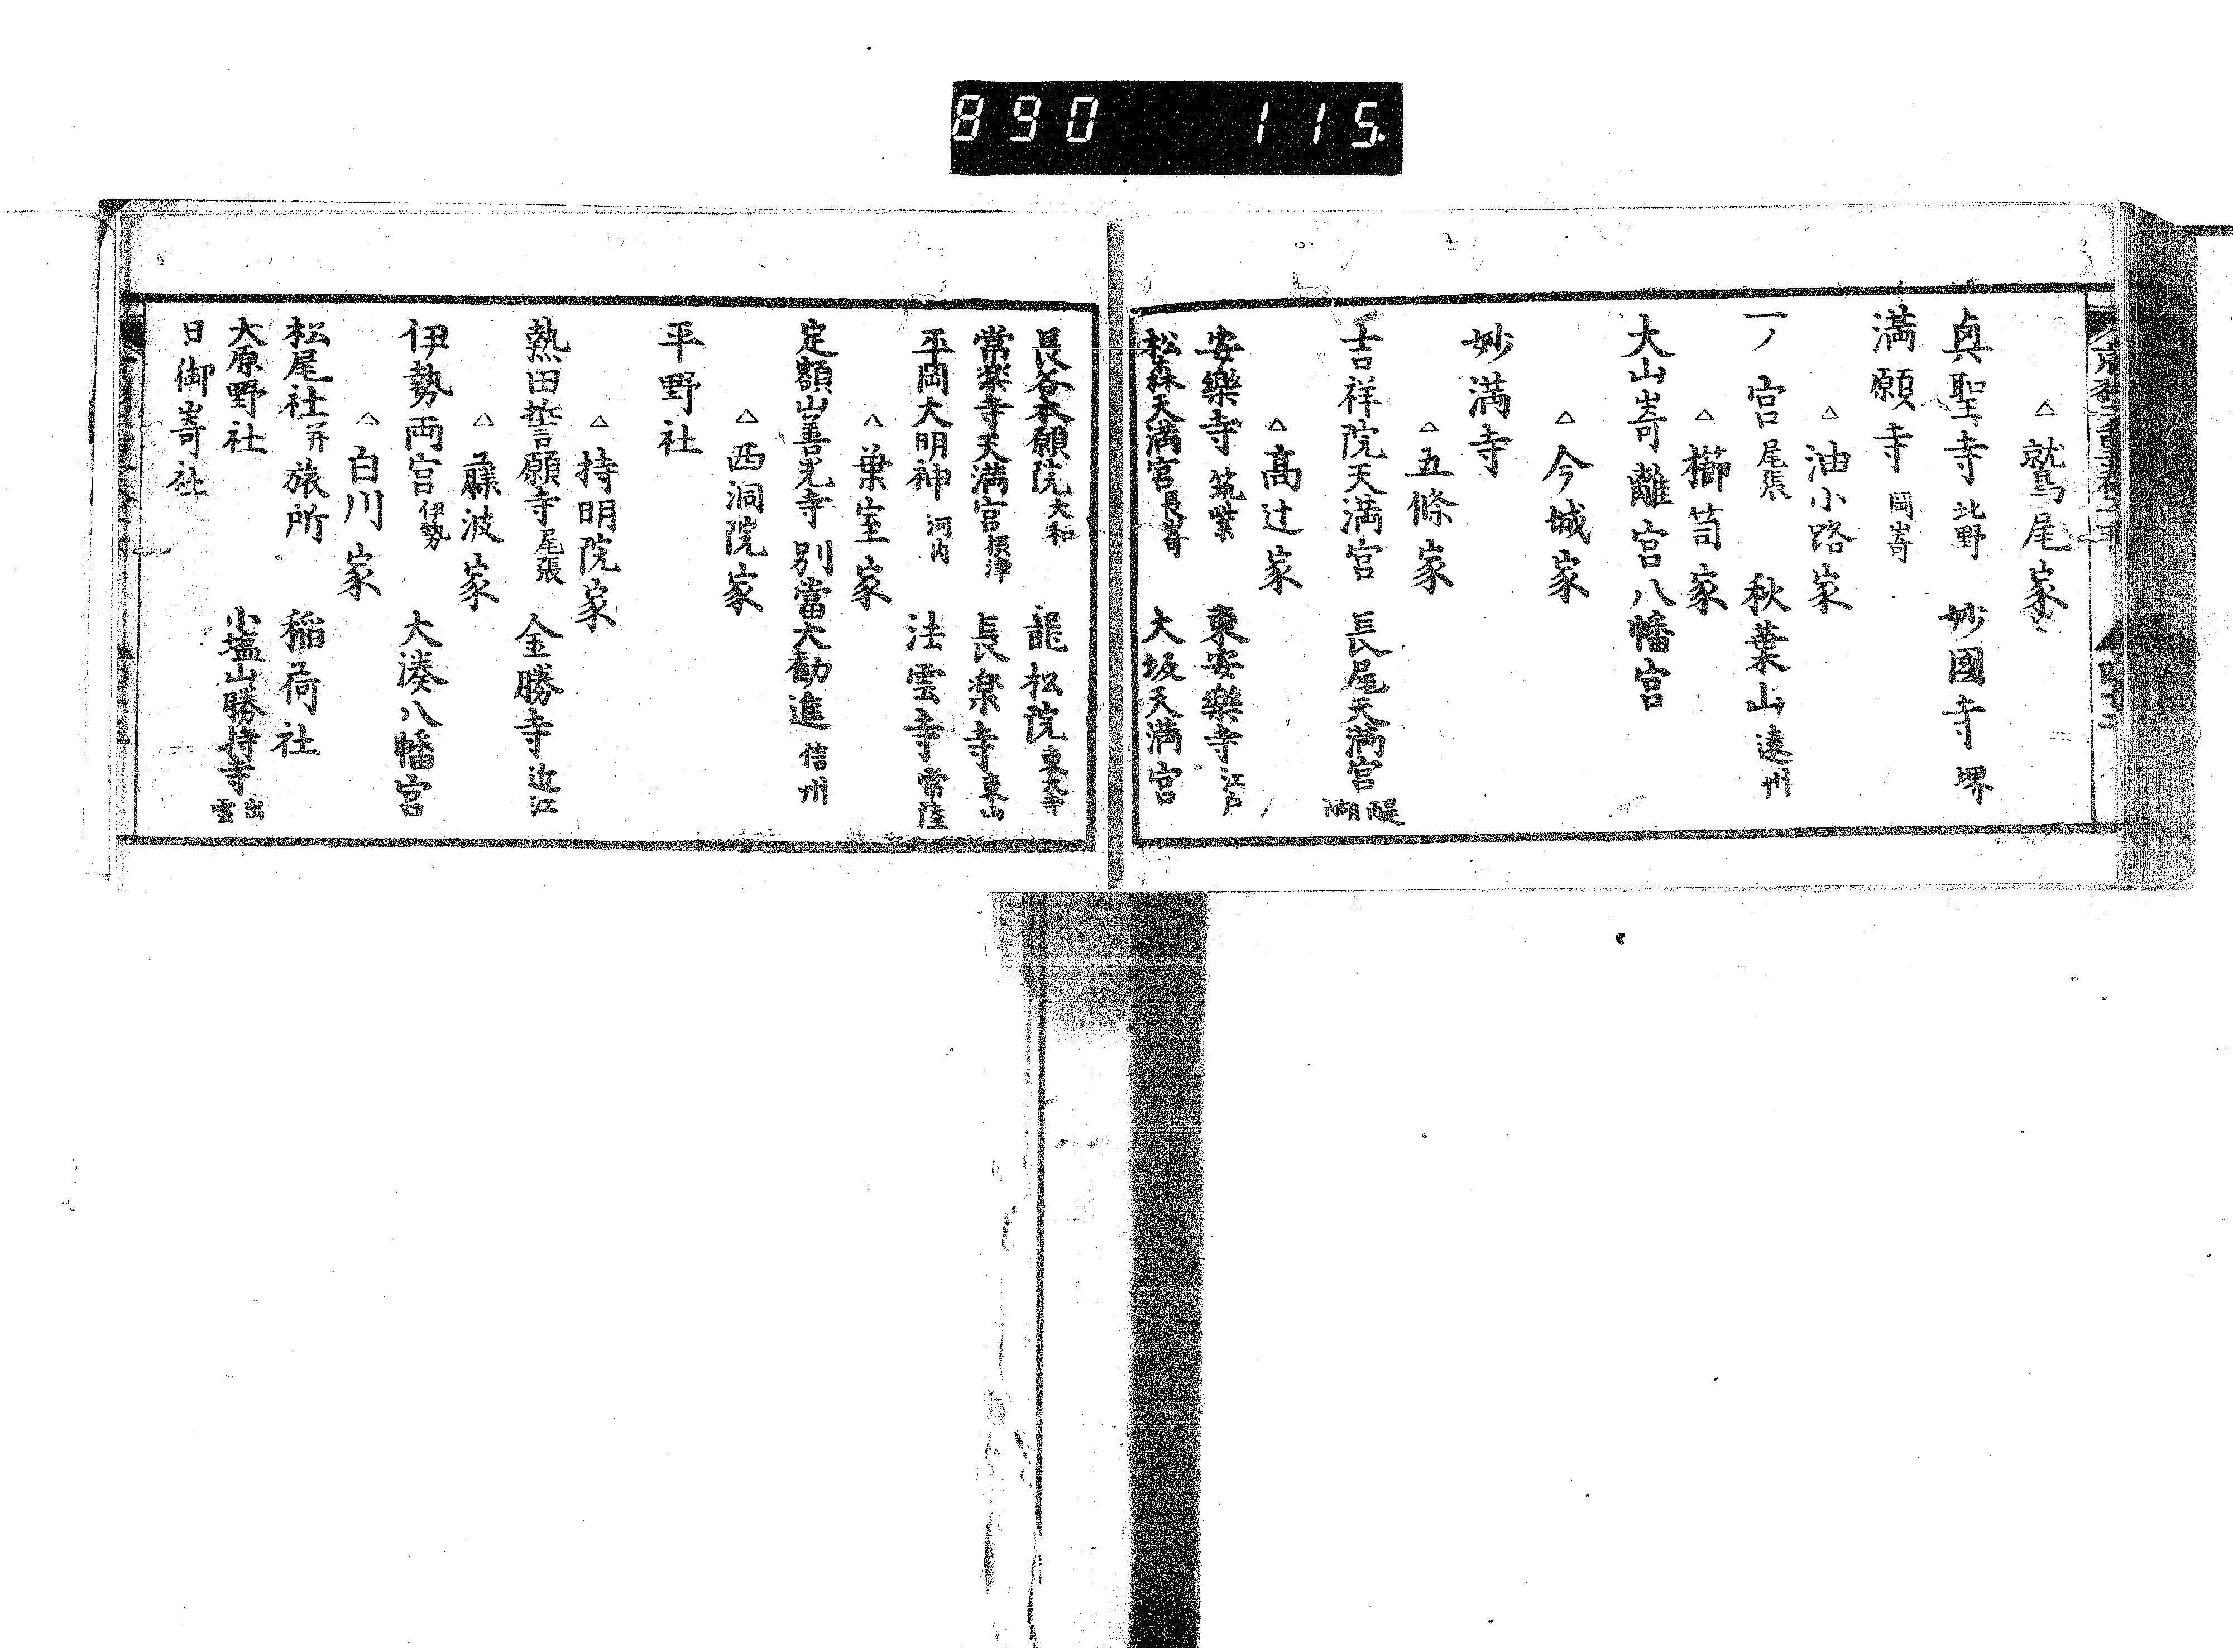 890 115
△鷲尾家
真聖寺 北野 妙國寺 堺
満願寺 岡嵜
△油小路家
一ノ宮 尾張 秋葉山 遠州
△櫛笥家
大山嵜離宮八幡宮
△今城家
妙満寺
△五條家
吉祥院天満宮 長尾天満宮 醍醐
△高辻家
安樂寺 筑紫 東安樂寺 江戸
松森天満宮 長嵜 大坂天満宮
長谷本願院 大和 龍松院 東大寺
常楽寺天満宮 摂津 長楽寺 東山
平岡大明神 河内 法雲寺 常陸
△葉室家
定額山善光寺別當大勧進 信州
△西洞院家
平野社
△持明院家
熱田誓願寺 尾張 金勝寺 近江
△藤波家
伊勢両宮 伊勢 大湊八幡宮
△白川家
松尾社并旅所 稲荷社
大原野社 小塩山勝持寺
日御嵜社 出雲